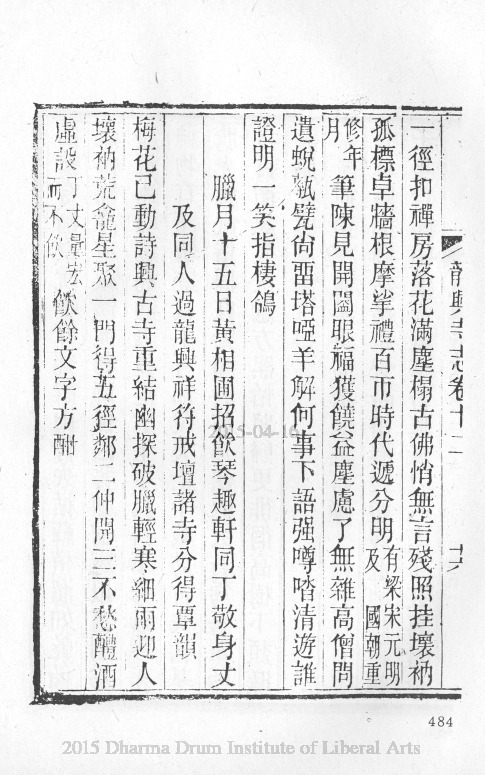 一徑扣禪房落花滿塵榻古佛悄無言殘照挂壞衲
孤標卓牆根摩挲禮百帀時代遞分明有梁宋元明及國朝重
修年月筆陳見開闔眼福獲饒益塵慮了無雜高僧問
遺蛻甃尙畱塔啞羊解何事下語强噂喒清遊誰
證明一笑指棲鴿
臘月十五日黃相圃招飮琴趣軒同丁敬身丈
及同人過龍興祥符戒壇諸寺分得覃韻
梅花已動詩興古寺重結幽探破臘輕寒細雨迎人
壞衲荒龕星聚一門得五徑鄰二仲開三不愁醴酒
虛設丁丈量宏而不飮飮餘文字方酣
龍興寺志卷十二
十六
2015-04-10
484
2015 Dharma Drum Institute of Liberal Arts